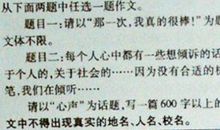 从下面两题中任选一题作文。
题目一：请以“那一次，我真的很棒！”为题
文体不限。
题目二：每个人心中都有一些想倾诉的话
于个人的，关于社会的……因为没有合适的
笔，我们在倾听……
请以“心声”为话题，写一篇 600 字以上的
文中不得出现真实的地名、人名、校名。